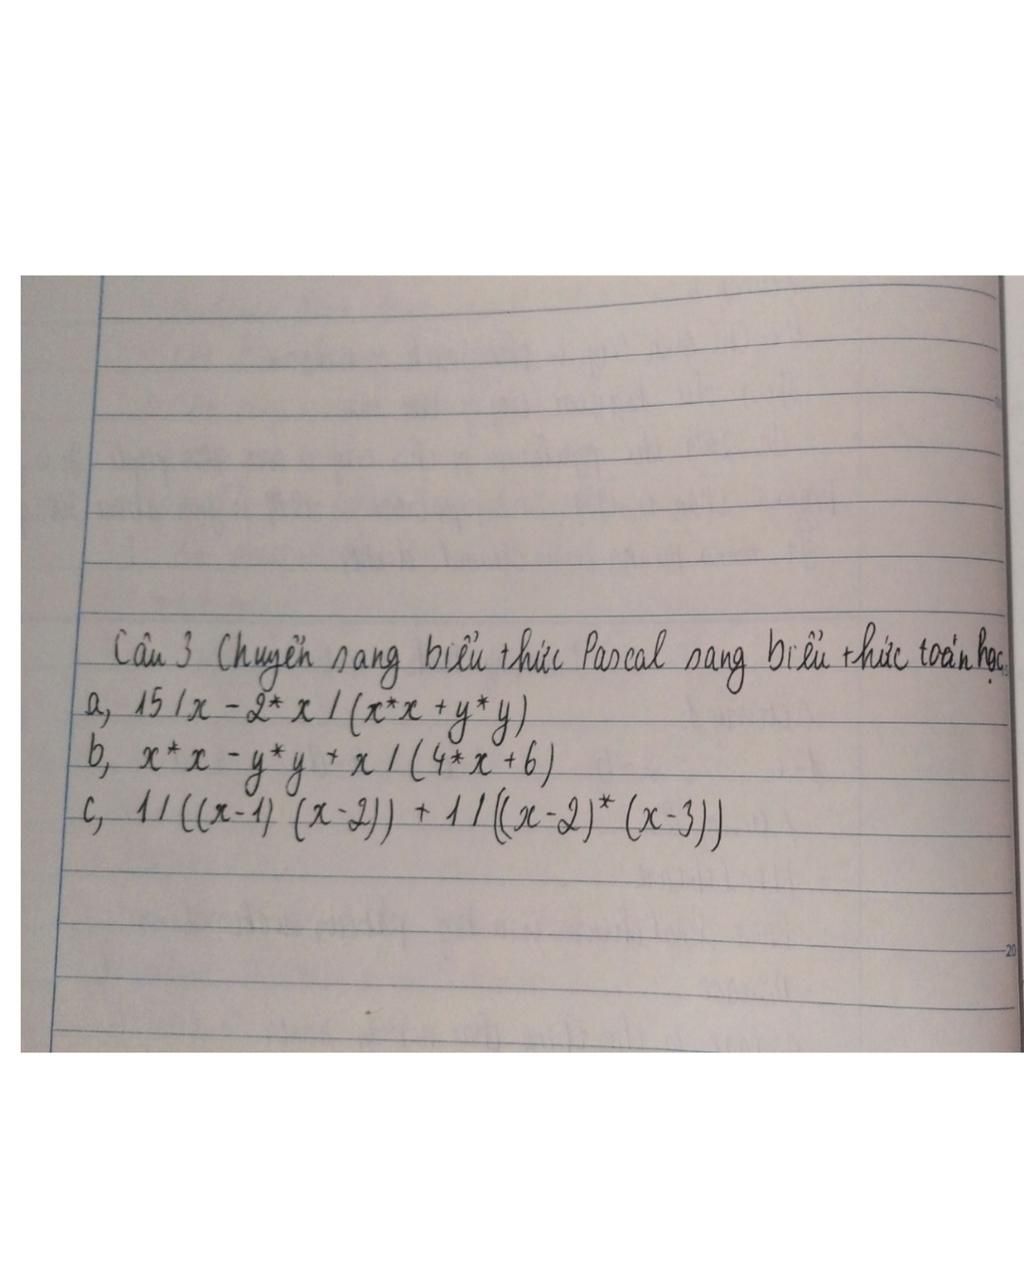 Câu 3 Chuyển sang biểu thức Pascal sang biểu thức toán học
a, 15/x - 2*x/(x*x + y*y)
b, x*x - y*y + x/(4*x+6)
c, 1/((x-1) (x-2)) + 1/((x-2)*(x-3))
20